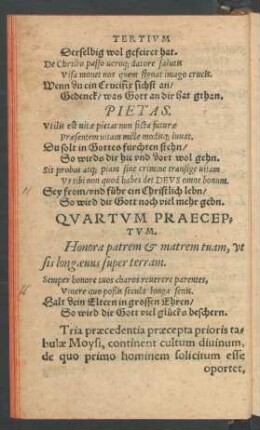 TERTIVM
Derselbig wol gefeiret hat.
De Christo passo uerbq; datore salutis
Visa monet nos quem signat imago crucis.
Wenn du ein Crucifix sichst an/
Gedenck/ was Gott an dir hat gethan.
PIETAS.
Vtilis est uitæ pietas non ficta futuræ
Præsentem uitam mille modisq; iuuat.
Du solt in Gottes furchten stehn/
So wirds dir hie vnd dort wol gehn.
Sit probus atq; piam sine crimine transige uitam
Vt tibi non quod habes det DEVS omne bonum.
Sey from/vnd führ ein Christlich lebn/
So wird dir Gott noch viel mehr gebn.
QVARTVM PRAECEP-
TVM.
Honora patrem & matrem tuam, vt
sis longæuus super terram.
Semper honore tuos charos reuerere parentes,
Viuere quo possis secula longa senex.
Halt dein Eltern in grossen Ehren/
So wird dir Gott viel glücks beschern.
Tria præcedentia præcepta prioris ta-
bulæ Moysi, continent cultum diuinum,
de quo primo hominem solicitum esse
oportet,